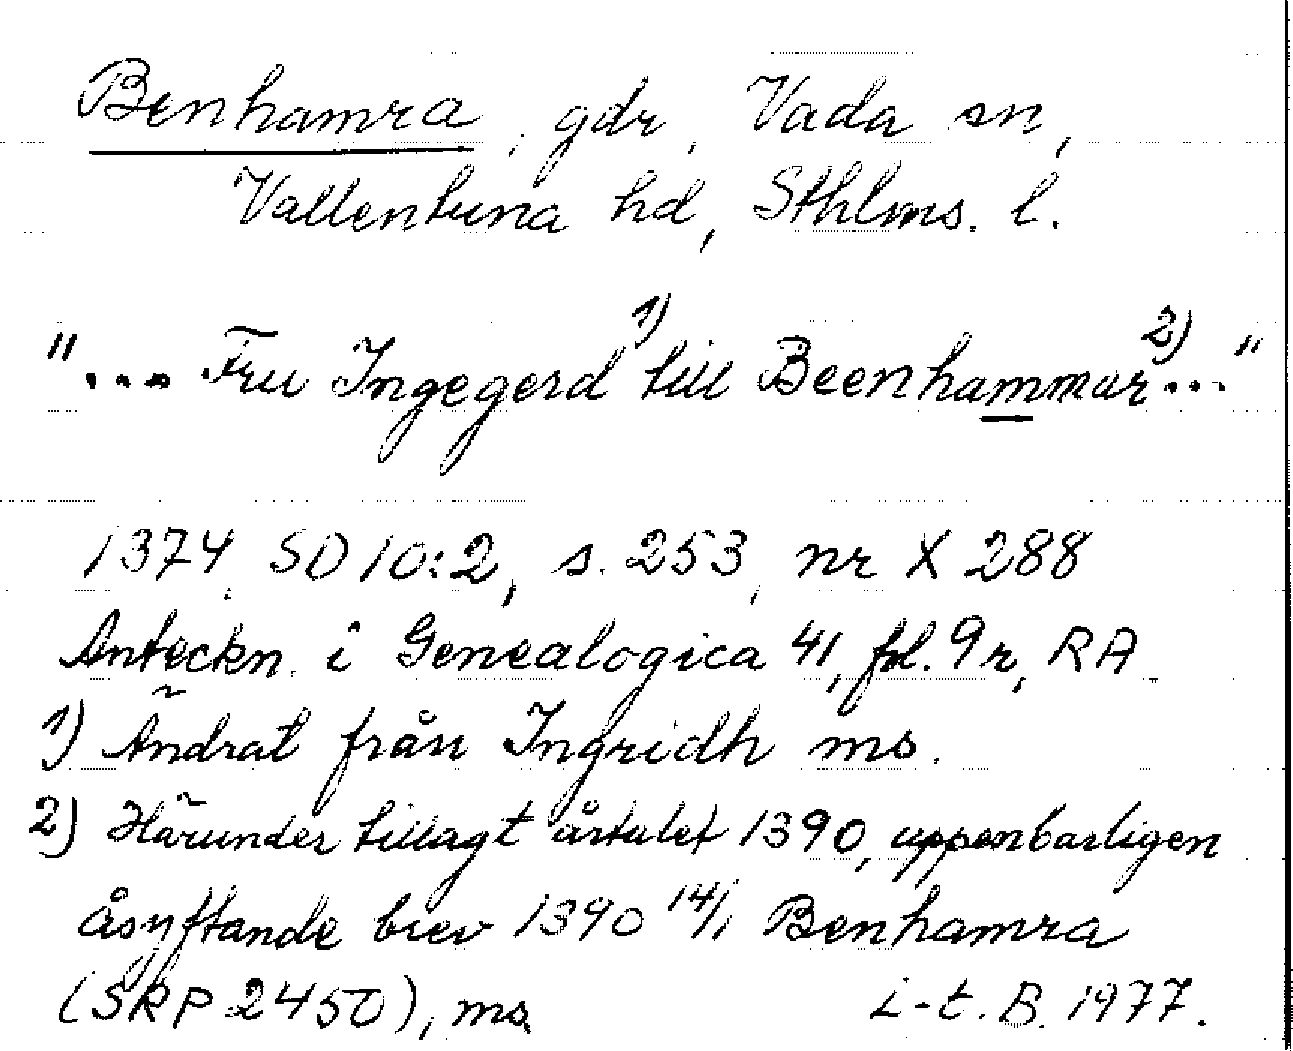 Benhamra, gdr, Vada sn,
Vallentuna hd, Sthlms. l.
"... Fru Ingegerd 1) till Beenhammar 2) ..."
1374, SD 10:2, s. 253, nr X 288
Anteckn. i Genealogica 41, fol. 9 r, RA.
1) Ändrat från Ingridh ms.
2) Härunder tillagt årtalet 1390, uppenbarligen
åsyftande brev 1390 14/1 Benhamra
(SRP 2450), ms.
L-t. B. 1977.